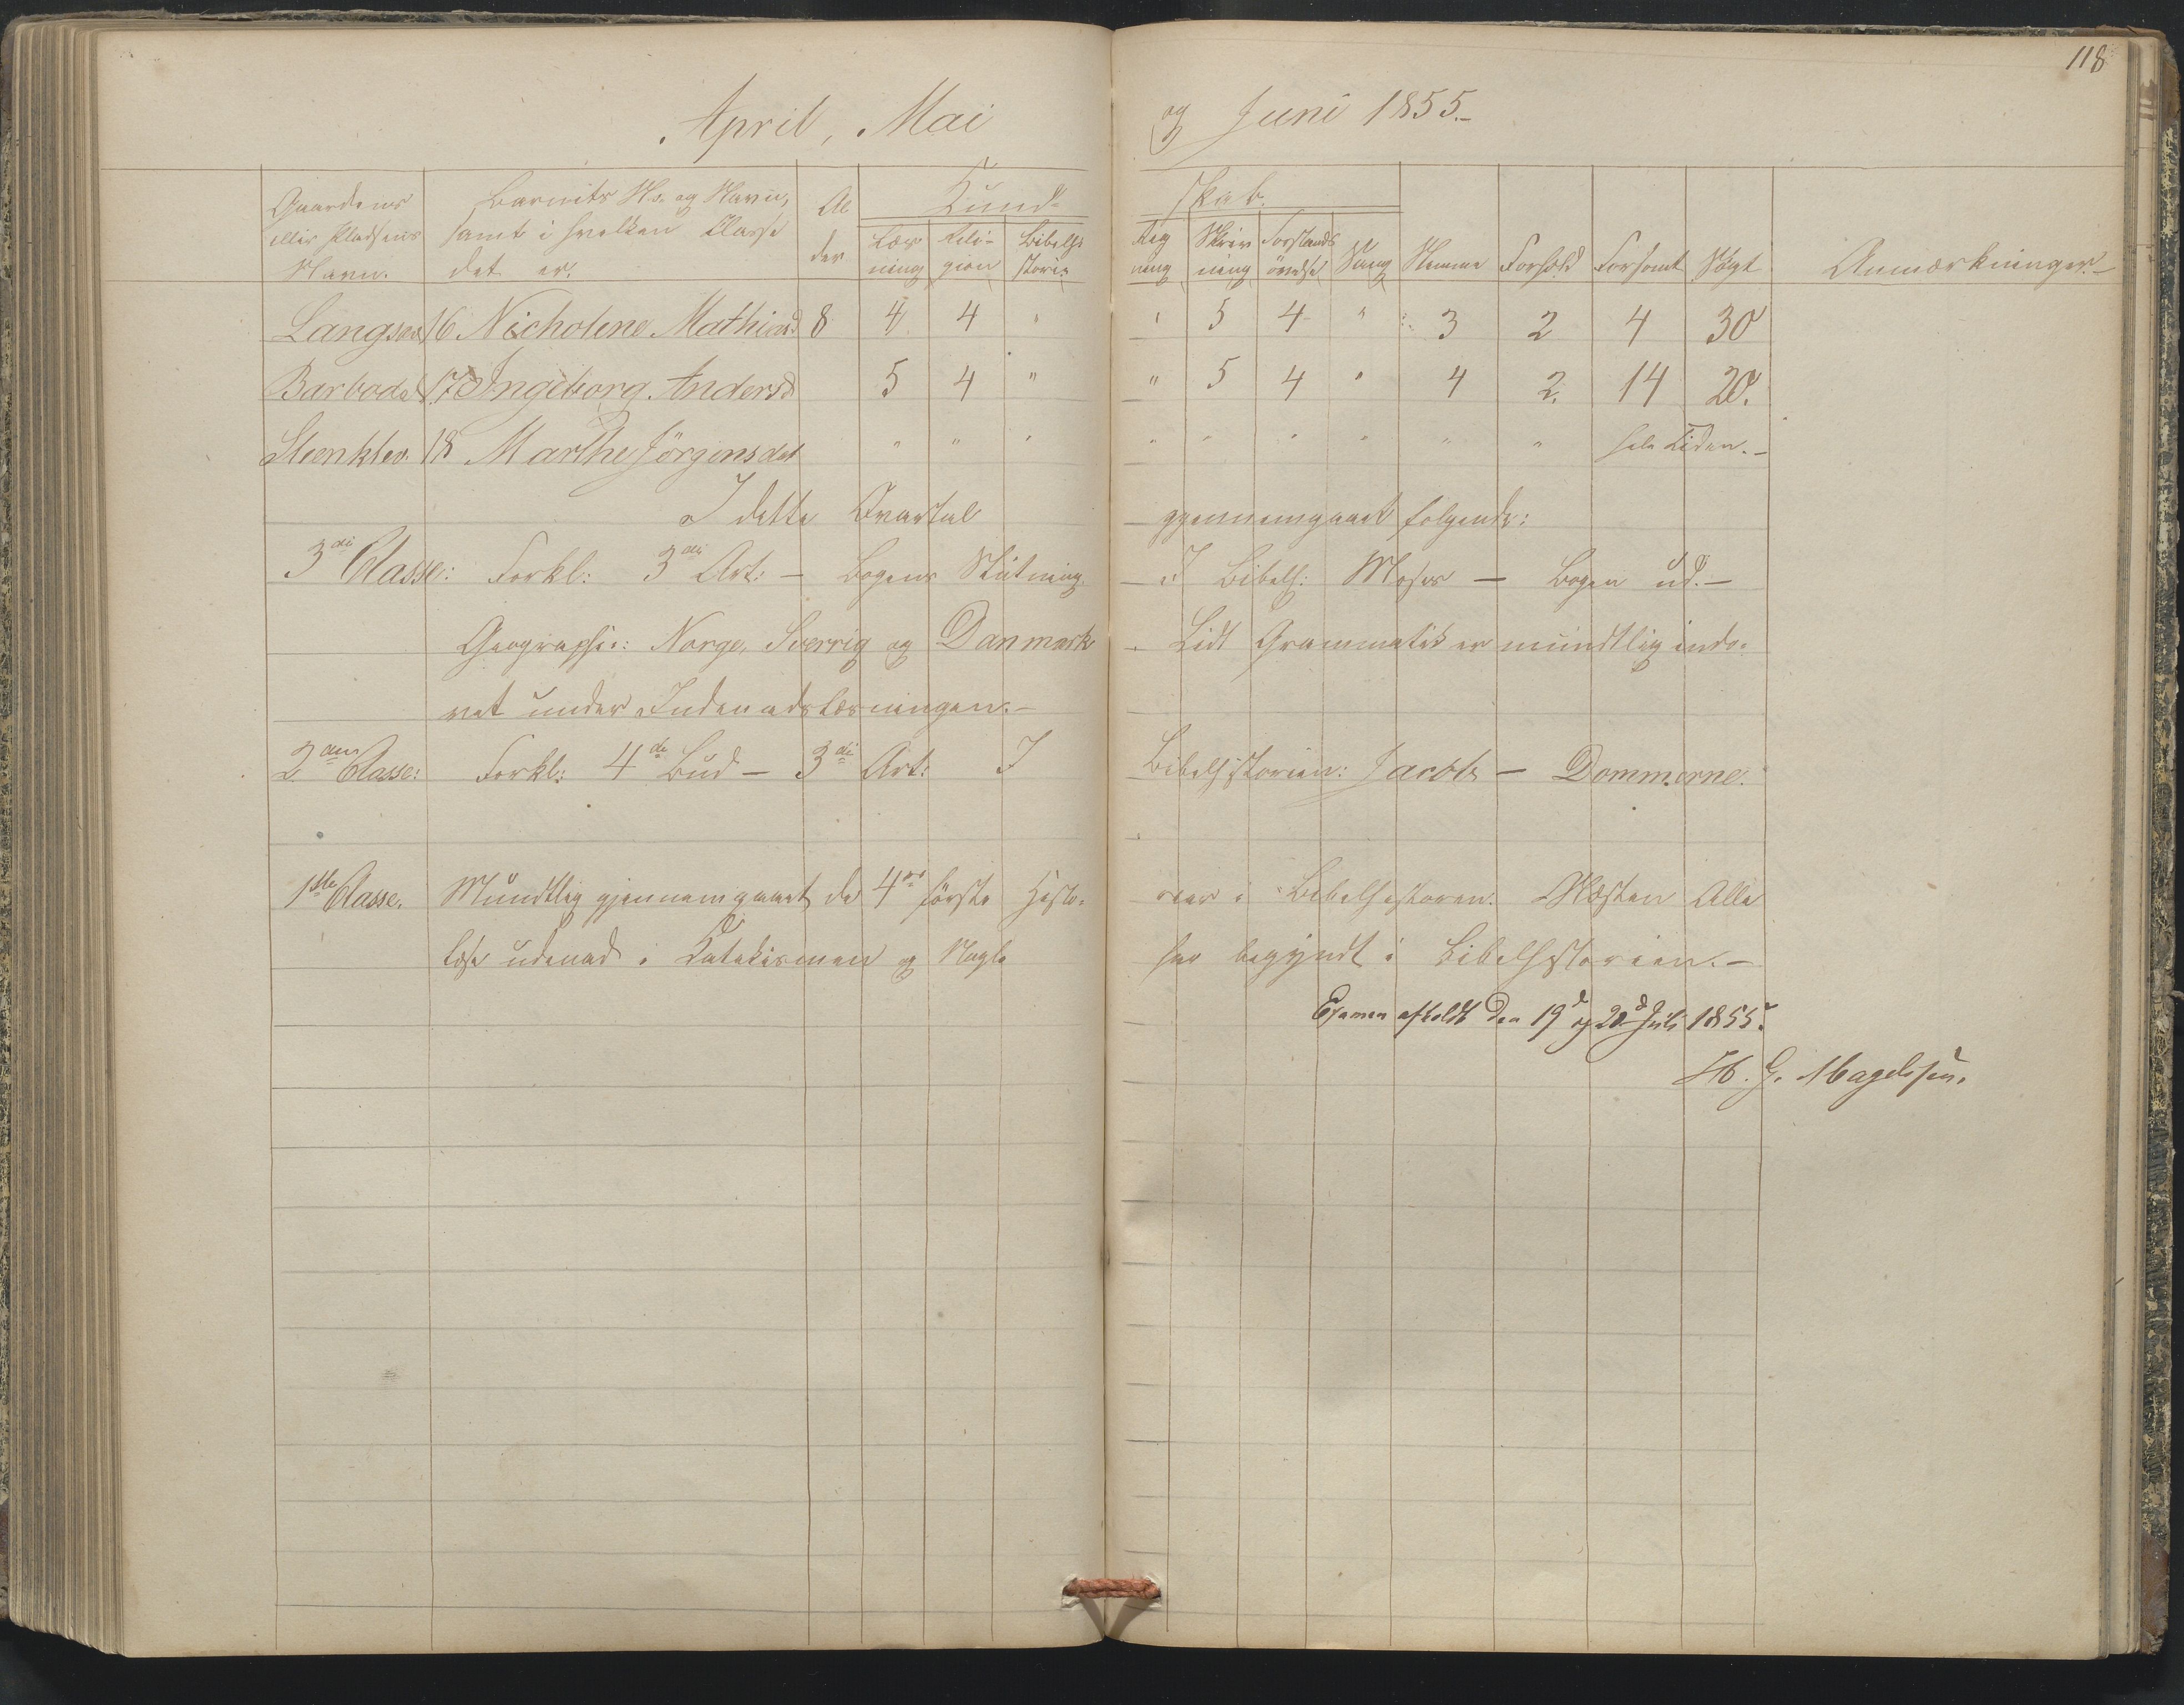 118
April, Mai og Juni 1855.-
Gaardens eller Pladsens Navn. Barnets No. og Navn, samt i hvilken Classe det er. Al der Kund- skab.
Læs ning Reli- gion Bibelhi storie Reg ning Skriv ning Forstands övelse Sang Hjemme Forhold Forsömt Sögt Anmærkninger.-
16 Nicholene Mathiasd 8 4 4 " " 5 4 " 3 2 4 30
17 Ingeborg Andersd 5 4 " " 5 4 " 4 2. 14 20.
Steenklev. 18 Marthe Jörgensdat " " " " " " " " " hele Tiden.-
I dette Qvartal gjennemgaaet følgende:
3die Classe: Forkl: 3die Art: - Bogens Slutning. I Bibelh: Moses - Bogen ud.-
Geographie: Norge, Sverrig og Danmark. Lidt Grammatik er mundtlig indö-
vet under Indenadslæsningen.-
2den Classe: Forkl: 4de Bud - 3die Art: I Bibelhistorien: Jacob - Dommerne.
1ste Classe. Mundtlig gjennemgaaet de 4re förste Histo- rier i Bibelhistorien. Næsten Alle
læse udenad i Katekismen og Nogle har begyndt i Bibelhistorien.-
Examen afholdt den 19d og 20d Juli 1855.
H. G. Magelssen.